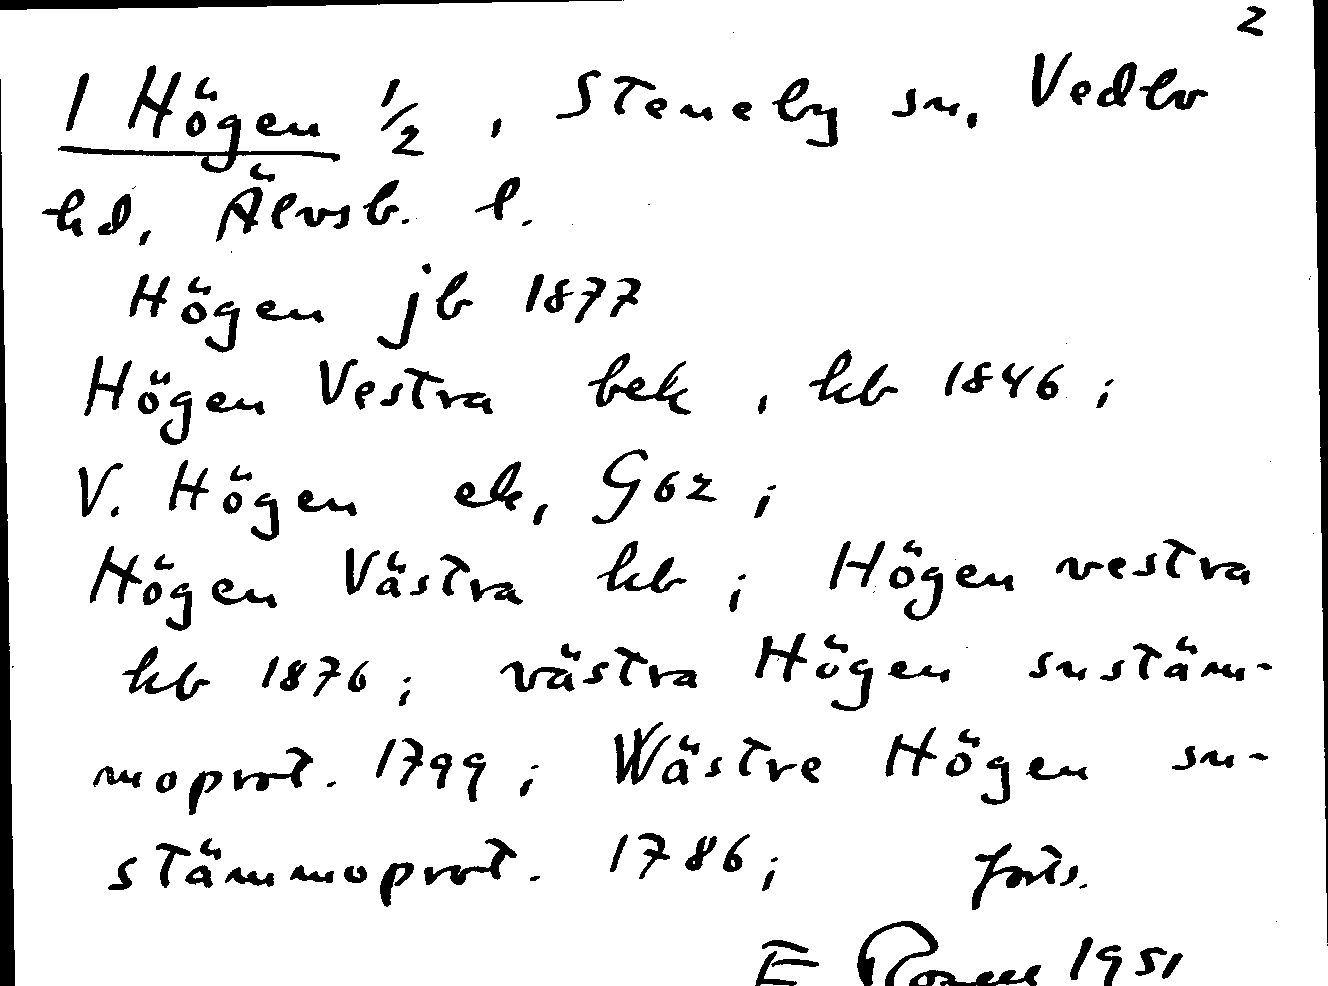 2
1 Högen 1/2, Steneby sn, Vedbo
hd, Älvsb. l.
Högen jb 1877
Högen Vestra bek, kb 1846;
V. Högen ek, G62;
Högen Västra kb; Högen vestra
kb 1876; västra Högen snstäm-
moprot. 1799; Wästre Högen sn-
stämmoprot. 1786; forts.
E Rosell 1951